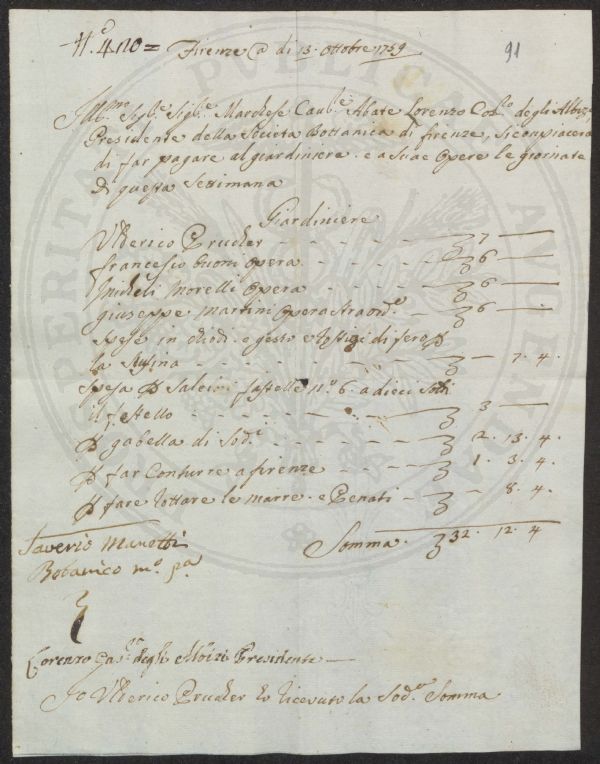 N.º 420 = Firenze @ di 13. Ottobre 1759 91
Ill.mo Sig.re Sig.re Marchese Cav.re Abate Lorenzo degli Albizi
Presidente della Società Bottanica di firenze, si conpiacera
di far pagare al giardiniere. e a suae Opere le giornate
di questa Settimana
Giardiniere
Ulderico Prucker - - - - 7 —
francescho buoni opera - - - - 6 —
Micheli Morelli Opera - - - - 6 —
giuseppe Martini Opera straord.a - 6 —
Spese in chiodi. e gesto e di fero p
la Stufina - - - - — 7. 4.
Spesa p Salcini fastella nº 6. a dieci Soldi
il fastello - - - - 3 —
p gabella di Sod.i - - - - 2. 13. 4.
p far Condurre a firenze - - - - 1. 3. 4.
p fare le marre. e Penati - — 8. 4.
Saverio Manetti Somma. 32. 12. 4
Botanico m.º p.a
Lorenzo degli Albizi Presidente —
Io Ulderico Prucker ho ricevuto la Sod.a Somma
PROSPERITATI PUBLICAE AUGENDAE